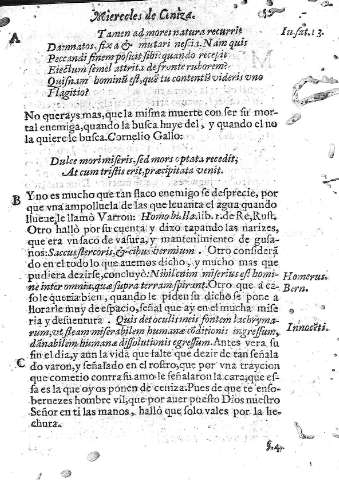 Miercoles de Ceniza.
A Tamen ad mores natura recurrit Iu. sat. 13.
Damnatos, fixa & mutari nescia. Nam quis
Peccandi finem posuit sibi: quando recepit
Eiectum semel attrita de fronte ruborem?
Quisnam hominũ est, quẽ tu contentũ videris vno
Flagitio?
No querays mas, que la misma muerte con ser su mor-
tal enemiga, quando la busca huye del, y quando el no
la quiere le busca. Cornelio Gallo:
Dulce mori miseris, sed mors optata recedit,
At cum tristis erit, præcipitata venit.
B Y no es mucho que tan flaco enemigo se desprecie, por
que vna ampolluela de las que leuanta el agua quando
llueue, le llamò Varron: Homo bulla. lib. 1. de Re, Rust,
Otro hallò por su cuenta y dixo tapando las narizes,
que era vn saco de vasura, y mantenimiento de gusa-
nos: Saccus stercoris, & cibus vermium. Otro considerá
do en el todo lo que auemos dicho, y mucho mas que
pudiera dezirse, concluyò: Nihil enim miserius est homi-
ne inter omnia, quæ supra terram spirant. Otro que à ca-
so le queria bien, quando le piden su dicho se pone a
llorarle muy de espacio, señal que ay en el mucha mise
ria y desuentura. Quis det oculis meis fontem lachryma-
rum, vt fleam miserabilem humanæ cõditionis ingressum,
dãnabilem humanæ dissolutionis egressum. Antes vera su
fin el dia, y aun la vida que falte que dezir de tan señala
C do varon, y señalado en el rostro, que por vna traycion
que cometio contra su amo le señalaron la cara; que es-
sa es la que oy os ponen de ceniza. Pues de que te enso-
bernezes hombre vil, que por auer puesto Dios nuestro
Señor en ti las manos, hallò que solo vales por la he-
chura.
Homerus.
Bern.
Innocēti.